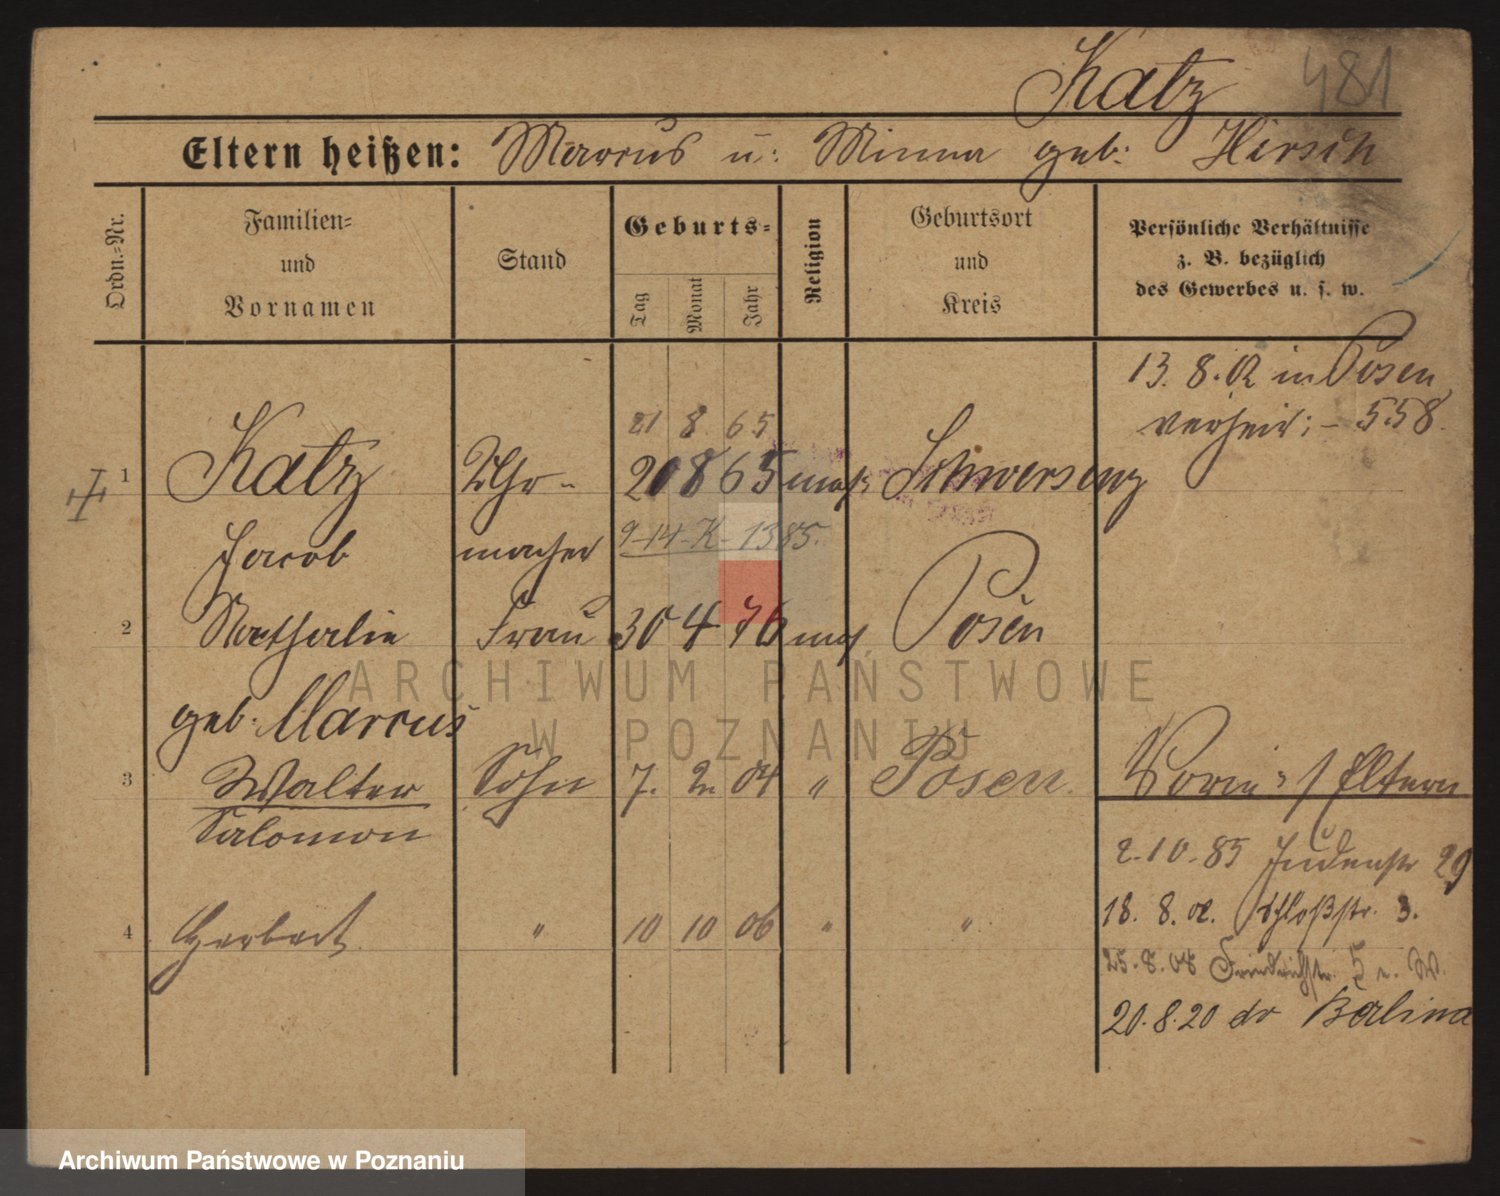 Katz 481
Eltern heißen: Marcus u: Minna geb: Hirsch
Ordn.-Nr.
Familien-
und
Vornamen
Stand
Geburts-
Tag
Monat
Jahr
Religion
Geburtsort
und
Kreis
Persönliche Verhältnisse
z. B. bezüglich
des Gewerbes u. s. w.
13. 8. 02 in Posen
verheir: - 558.
21 8 65
1 Katz Uhr- 20 8 65 mos: Schwersenz
9-14-K-1385.
Jacob macher
2 Nathalie Frau 30 4 76 mos Posen
geb: Marcus
3 Walter Sohn 7. 2. 04 " Posen / Eltern
Salomon
2.10.85 Judenstr 29
18. 8. 02. Schloßstr. 3.
4 Herbert " 10 10 06 " "
25.8.08 Friedrichstr. 5
20.8.20 do Berlina
ARCHIWUM PAŃSTWOWE
W POZNANIU
Archiwum Państwowe w Poznaniu